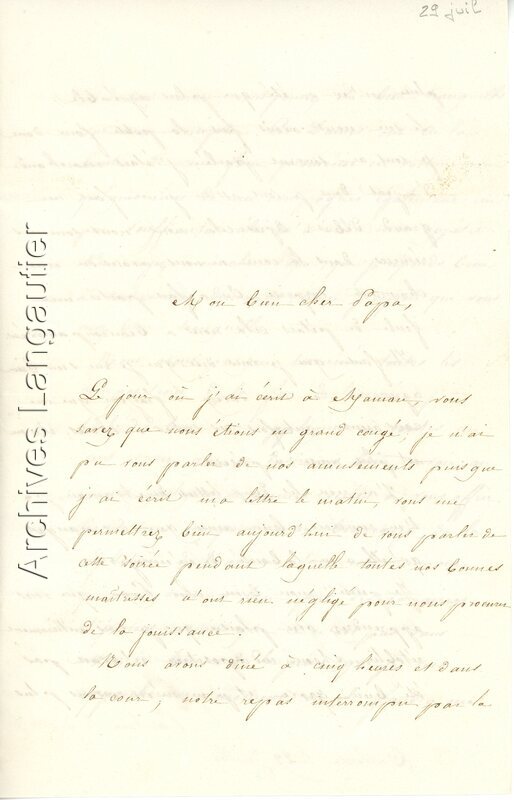 29 juil
Archives Langautier
Mon bien cher Papa,
Le jour où j'ai écrit à Maman, vous
savez que nous étions en grand congé, je n'ai
pu vous parler de nos amusements puisque
j'ai écrit ma lettre le matin, vous me
permettrez bien aujourd'hui de vous parler de
cette soirée pendant laquelle toutes nos bonnes
maîtresses n'ont rien négligé pour nous procurer
de la jouissance.
Nous avons dîné à cinq heures et dans
la cour ; notre repas interrompu par la